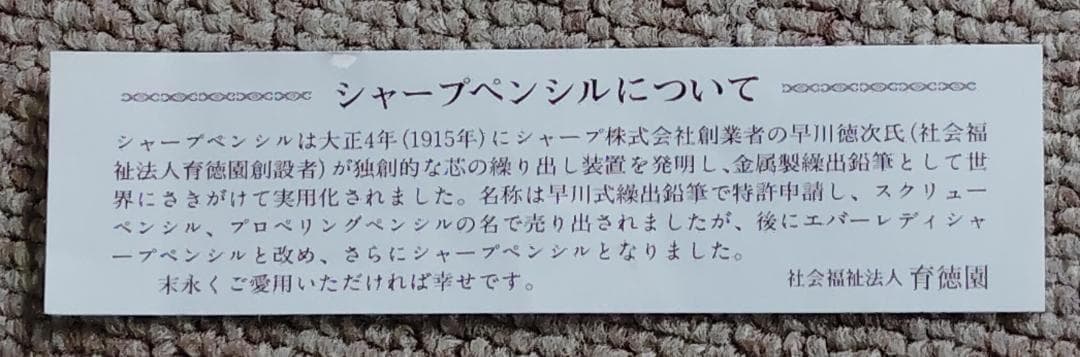 シャープペンシルについて
シャープペンシルは大正4年(1915年)にシャープ株式会社創業者の早川徳次氏(社会福
祉法人育徳園創設者)が独創的な芯の繰り出し装置を発明し、金属製繰出鉛筆として世
界にさきがけて実用化されました。名称は早川式繰出鉛筆で特許申請し、スクリュー
ペンシル、プロペリングペンシルの名で売り出されましたが、後にエバーレディシャ
ープペンシルと改め、さらにシャープペンシルとなりました。
末永くご愛用いただければ幸せです。
社会福祉法人 育徳園